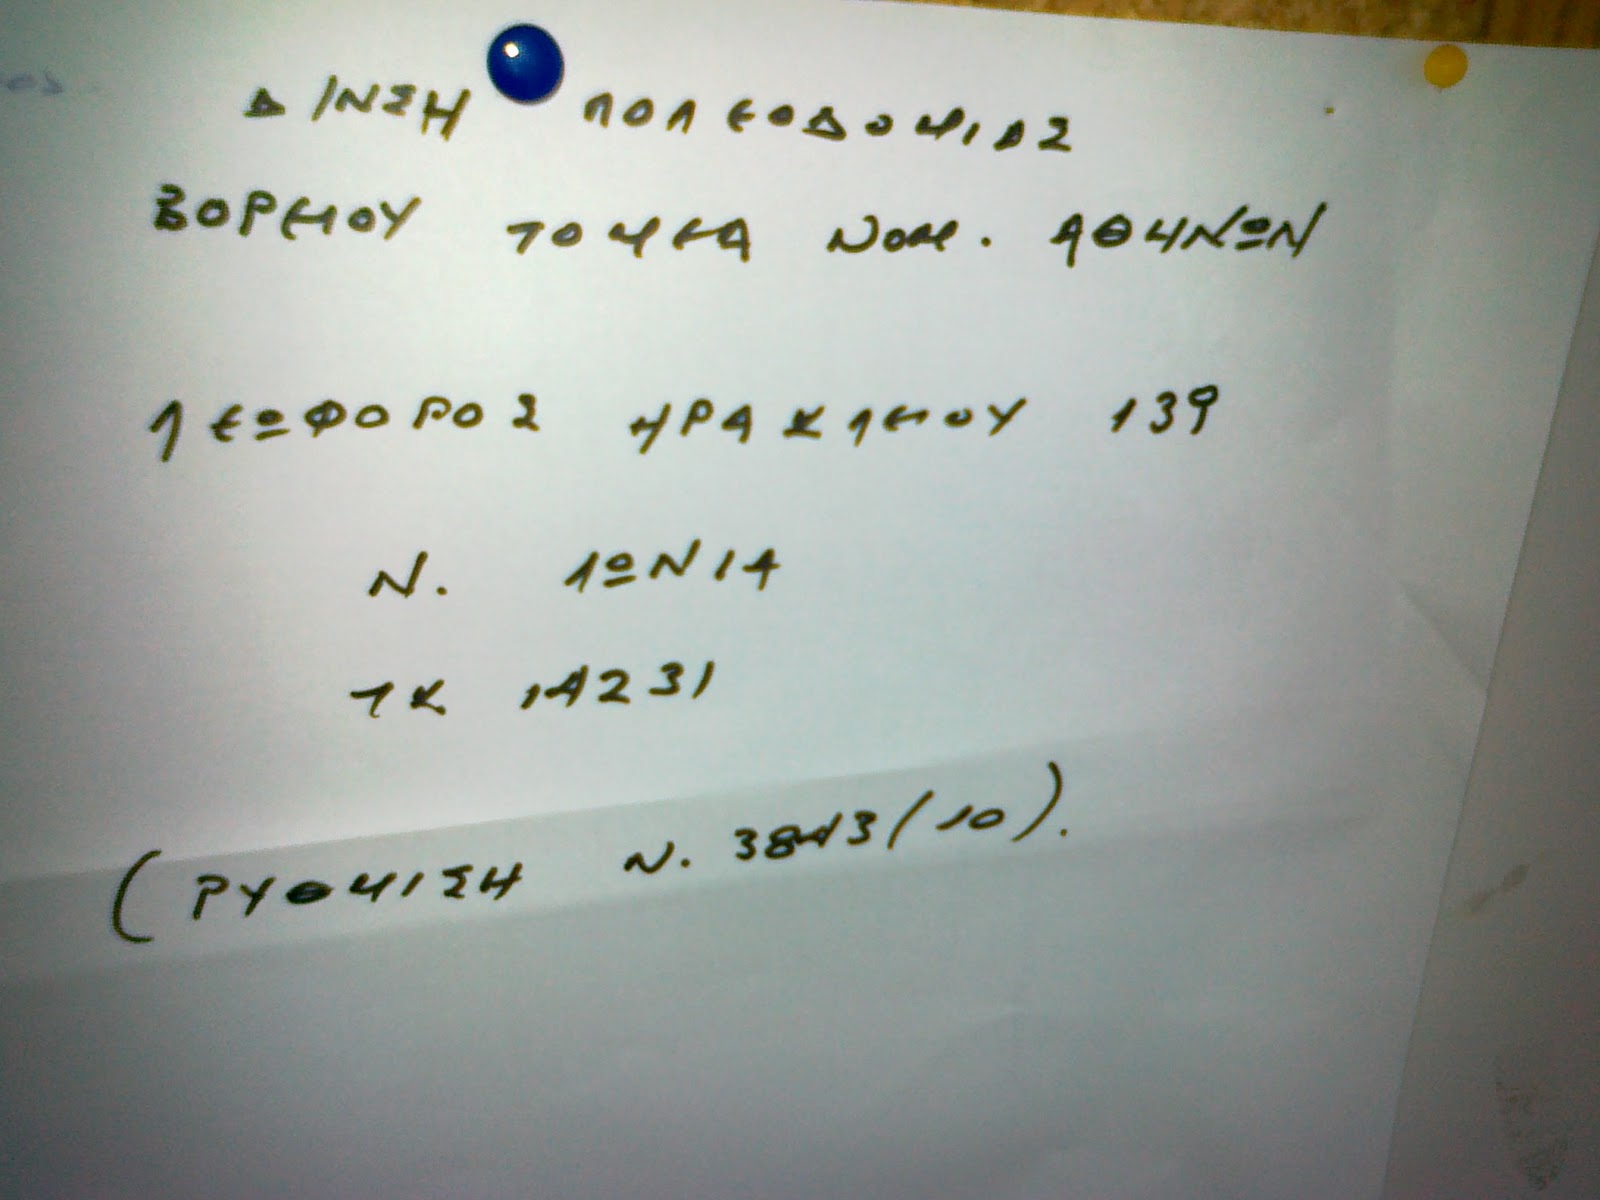 Δ/ΝΣΗ ΠΟΛΕΟΔΟΜΙΑΣ
ΒΟΡΕΙΟΥ ΤΟΜΕΑ ΝΟΜ. ΑΘΗΝΩΝ
ΛΕΩΦΟΡΟΣ ΗΡΑΚΛΕΙΟΥ 139
Ν. ΙΩΝΙΑ
ΤΚ 14231
(ΡΥΘΜΙΣΗ Ν. 3843/10).